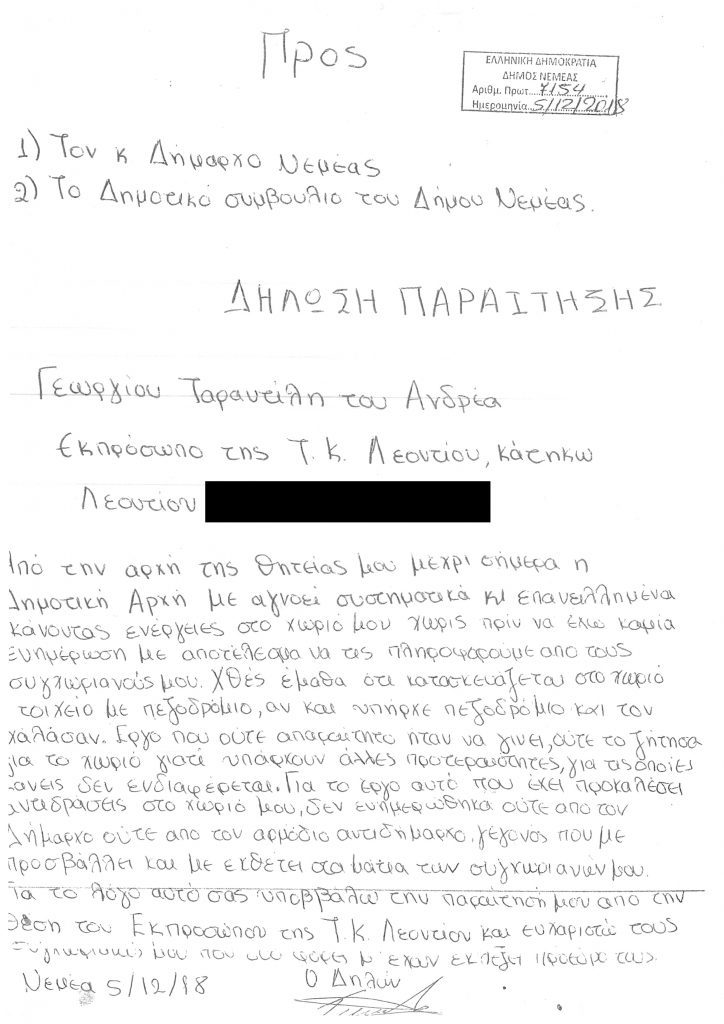 Προς
ΕΛΛΗΝΙΚΗ ΔΗΜΟΚΡΑΤΙΑ
ΔΗΜΟΣ ΝΕΜΕΑΣ
Αριθμ. Πρωτ. 7154
Ημερομηνία. 5/12/2018
1) Τον κ Δήμαρχο Νεμέας
2) Το Δημοτικό συμβουλιο του Δήμου Νεμέας.
ΔΗΛΩΣΗ ΠΑΡΑΙΤΗΣΗΣ
Γεωργίου Ταραντίλη του Ανδρέα
Εκπρόσωπο της Τ.Κ. Λεοντίου, κάτηκω
Λεοντίου
Από την αρχή της θητείας μου μέχρι σήμερα η
Δημοτική Αρχή με αγνοεί συστηματικά κι επανειλλημένα
κάνοντας ενέργειες στο χωριό μου χωρίς πρίν να έχω καμία
ενημέρωση με αποτέλεσμα να τις πληροφορούμε από τους
συγχωριανούς μου. Χθές έμαθα ότι κατασκευάζεται στο χωριό
τοιχείο με πεζοδρόμιο, αν και υπήρχε πεζοδρόμιο και τον
χάλασαν. Έργο που ούτε απαραίτητο ήταν να γίνει, ούτε το ζήτησα
για το χωριό γιατί υπάρχουν άλλες προτεραιότητες, για τις οποίες
κανείς δεν ενδιαφέρεται. Για το έργο αυτό που έχει προκαλέσει
αντιδράσεις στο χωριό μου, δεν ενημερώθηκα ούτε από τον
Δήμαρχο ούτε από τον αρμόδιο αντιδήμαρχο, γεγονός που με
προσβάλλει και με εκθέτει στα μάτια των συγχωριανών μου.
Για το λόγο αυτό σας υποββάλω την παραίτησή μου από την
θέση του Εκπροσώπου της Τ.Κ. Λεοντίου και ευχαριστώ τους
συγχωριανούς μου που φορές μ' έχουν εκλέξει
Νεμέα 5/12/18
Ο Δηλών